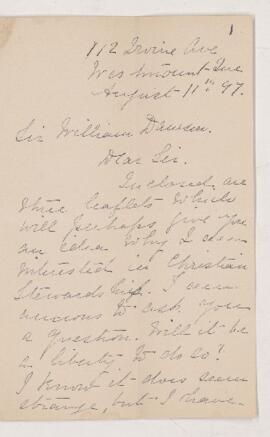 1
112 Irvine Ave
Westmount Que
August 11th 97.
Sir William Dawson.
Dear Sir.
Inclosed are
three leaflets which
will perhaps give you
an idea why I am
interested in Christian
Stewardship. I am
anxious to ask you
a question. Will it be
a liberty to do so?
I know it does seem
strange, but I have